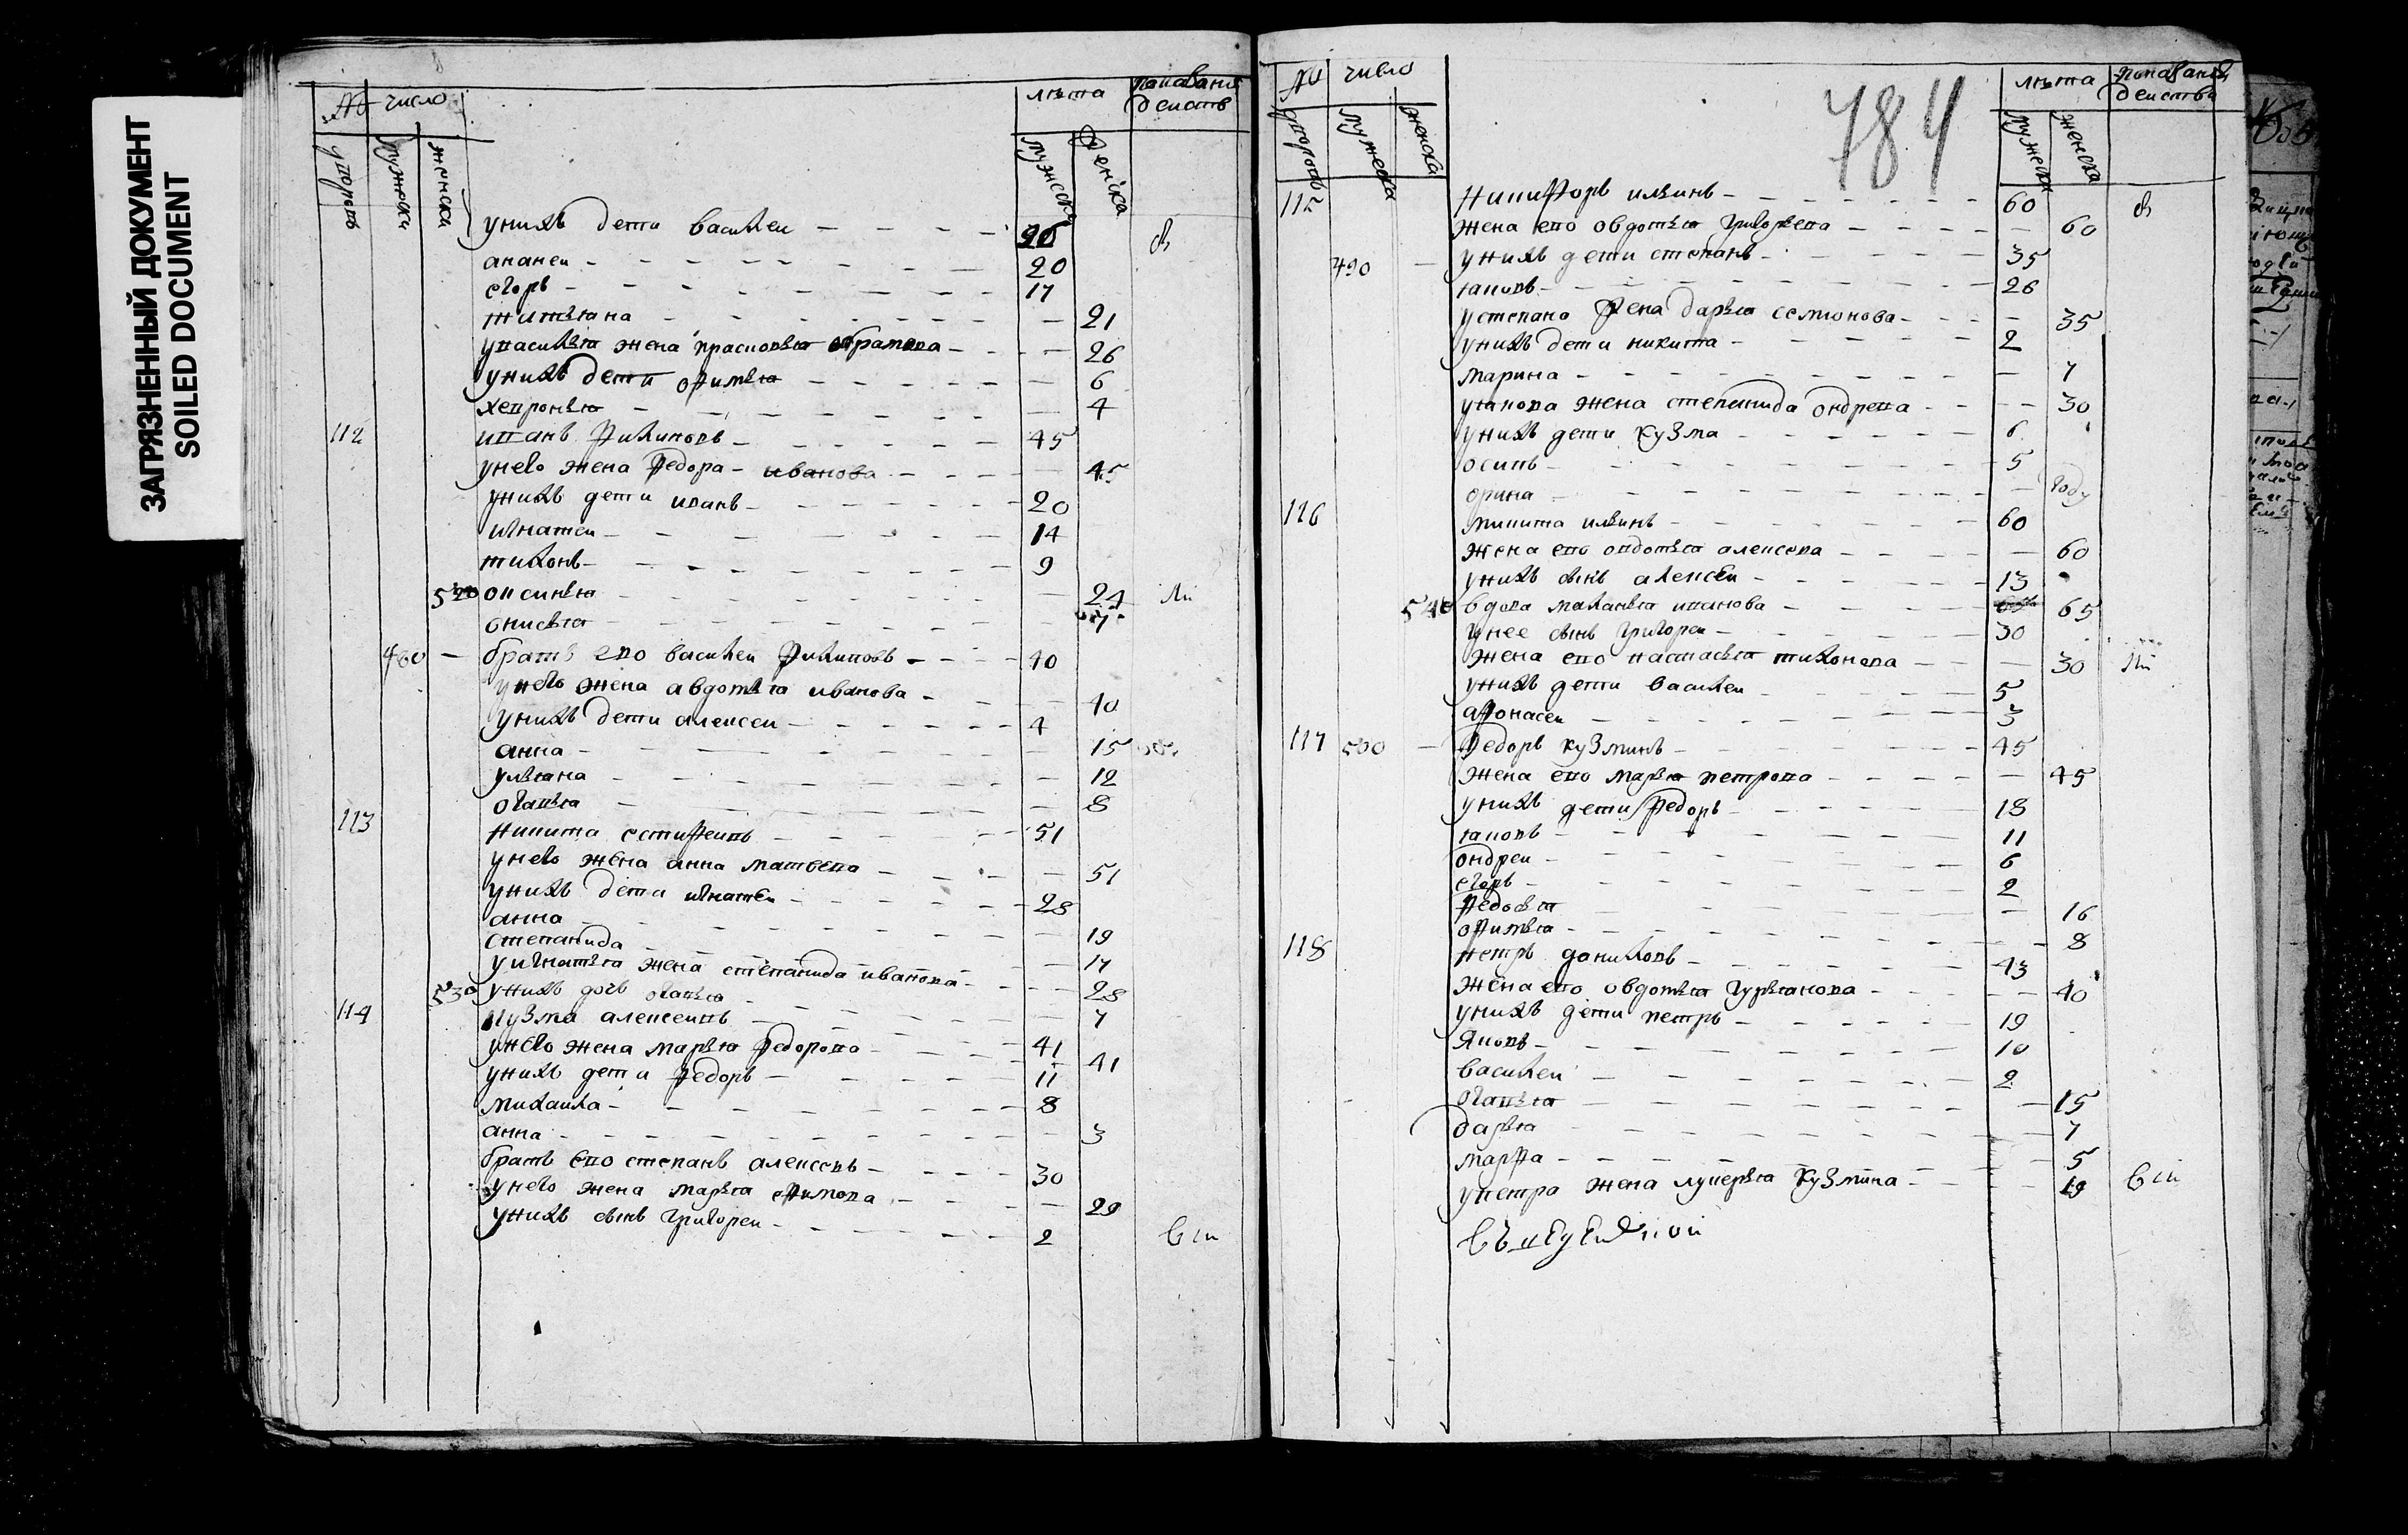 ЗАГРЯЗНЕННЫЙ ДОКУМЕНТ
SOILED DOCUMENT
№ число лѣта показание действ
дворовъ мужеска женска мужеска женска
унихъ дети василеи 26
ананеи 20
егоръ 17
татьяна 21
увасилья жена прасковья абрамова 26
унихъ дети офимья 6
хевронья 4
112 иванъ филиповъ 45
унево жена федора иванова 45
унихъ дети иванъ 20
игнатеи 14
тихонъ 9
520 оксинья 24
онисья 7
460 братъ ево василеи филиповъ 40
унево жена авдотья иванова 40
унихъ дети алексеи 4
анна 15
ульяна 12
огапья 8
113 никита естифеивъ 51
унево жена анна матвева 51
унихъ дети игнатеи 28
анна 19
степанида 17
уигнатья жена степанида иванова 28
530 унихъ дочь огапья 7
114 кузма алексеивъ 41
унево жена марья федорова 41
унихъ дети федоръ 11
михаила 8
анна 3
братъ ево степанъ алексевъ 30
унево жена марья ефимова 29
унихъ сынъ григореи 2
784
№ число лѣта показания действа
дворовъ мужеска женска мужеска женска
115 никифоръ ильинъ 60
жена ево овдотья григорьева 60
490 унихъ дети степанъ 35
яковъ 26
устепана жена дарья семионова 35
унихъ дети никита 2
марина 7
уякова жена степанида ондрева 30
унихъ дети кузма 6
осипъ 5
орина году
116 никита ильинъ 60
жена ево овдотья алексева 60
унихъ сынъ алексеи 13
540 вдова маланья иванова 65
унее сынъ григореи 30
жена ево настасья тихонова 30
унихъ дети василеи 5
афонасеи 3
117 500 федоръ кузминъ 45
жена ево марья петрова 45
унихъ дети федоръ 18
яковъ 11
ондреи 6
егоръ 2
федосья 16
офимья 8
118 петръ даниловъ 43
жена ево овдотья гурьянова 40
унихъ дети петръ 19
яковъ 10
василеи 2
огапья 15
дарья 7
марфа 5
упетра жена лукерья кузмина 19